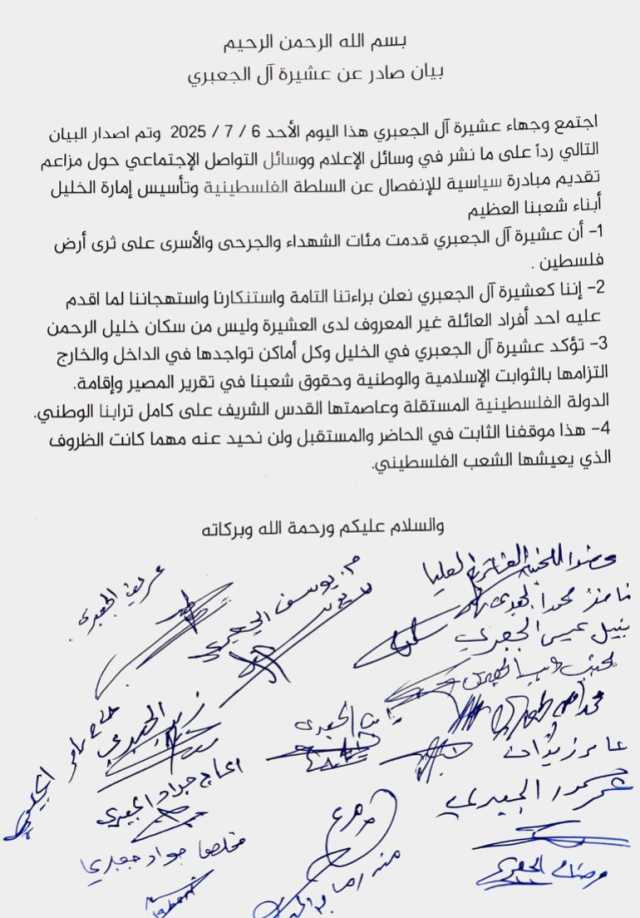 بسم الله الرحمن الرحيم
بيان صادر عن عشيرة آل الجعبري
اجتمع وجهاء عشيرة آل الجعبري هذا اليوم الأحد 6 / 7 / 2025 وتم اصدار البيان
التالي رداً على ما نشر في وسائل الإعلام ووسائل التواصل الإجتماعي حول مزاعم
تقديم مبادرة سياسية للإنفصال عن السلطة الفلسطينية وتأسيس إمارة الخليل
أبناء شعبنا العظيم
1- أن عشيرة آل الجعبري قدمت مئات الشهداء والجرحى والأسرى على ثرى أرض
فلسطين .
2- إننا كعشيرة آل الجعبري نعلن براءتنا التامة واستنكارنا واستهجاننا لما اقدم
عليه احد أفراد العائلة غير المعروف لدى العشيرة وليس من سكان خليل الرحمن
3- تؤكد عشيرة آل الجعبري في الخليل وكل أماكن تواجدها في الداخل والخارج
التزامها بالثوابت الإسلامية والوطنية وحقوق شعبنا في تقرير المصير وإقامة.
الدولة الفلسطينية المستقلة وعاصمتها القدس الشريف على كامل ترابنا الوطني.
4- هذا موقفنا الثابت في الحاضر والمستقبل ولن نحيد عنه مهما كانت الظروف
الذي يعيشها الشعب الفلسطيني.
والسلام عليكم ورحمة الله وبركاته
م. يوسف الجعبري
نبيل عيسى الجعبري
الحاج جواد الجعبري
جواد جعبري
الجعبري